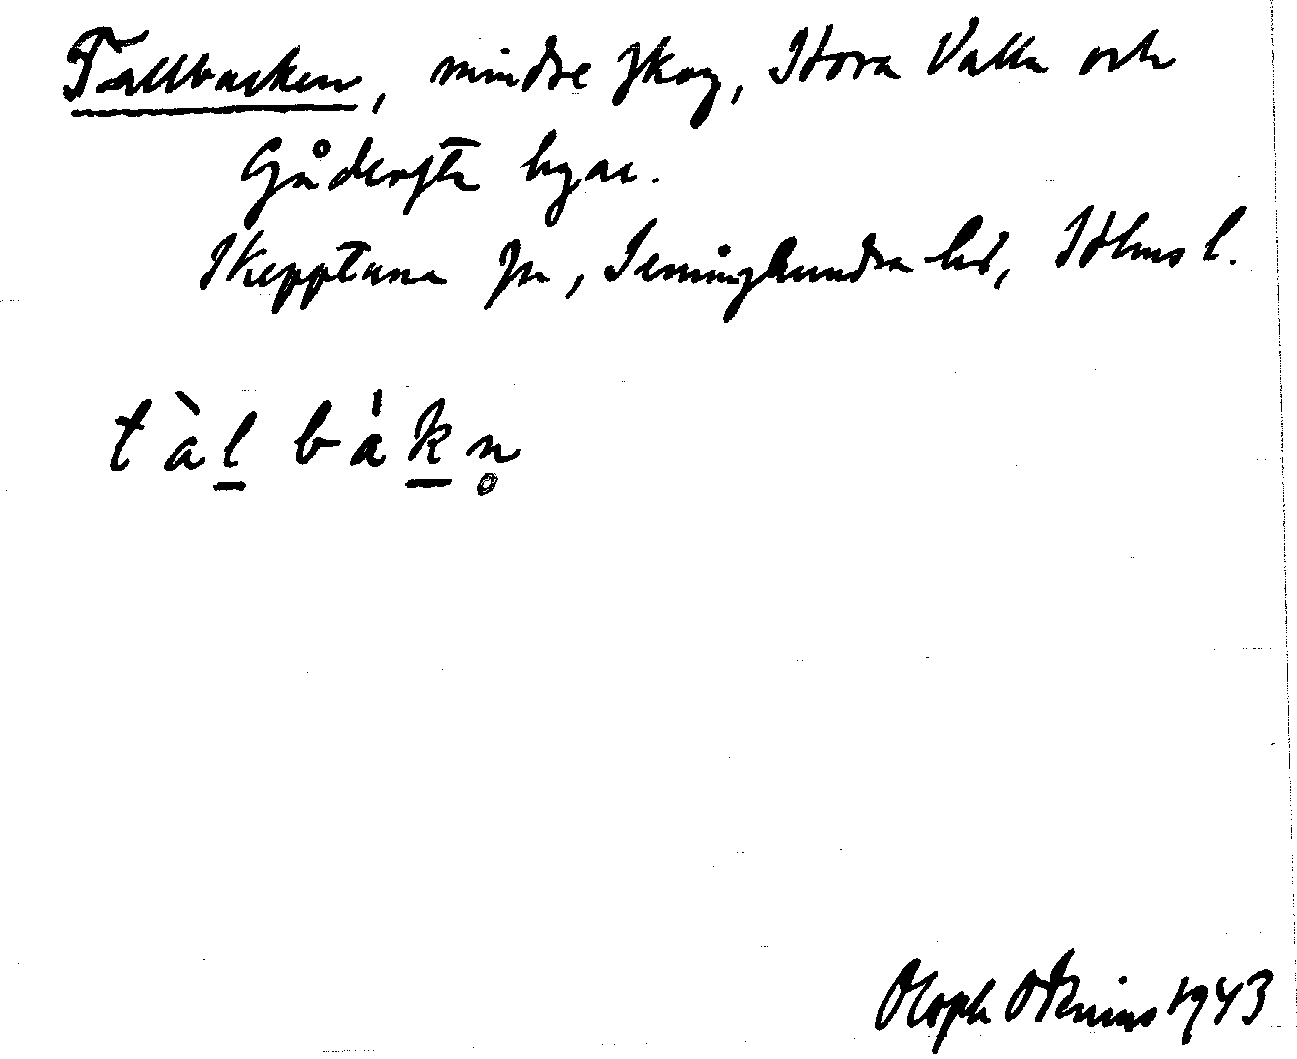 Tallbacken, mindre skog, Stora Valla och
Gådersta byar.
Skepptuna sn, Seminghundra hd, Sthms l.
tàl bákn̥
Oloph Odenius 1943